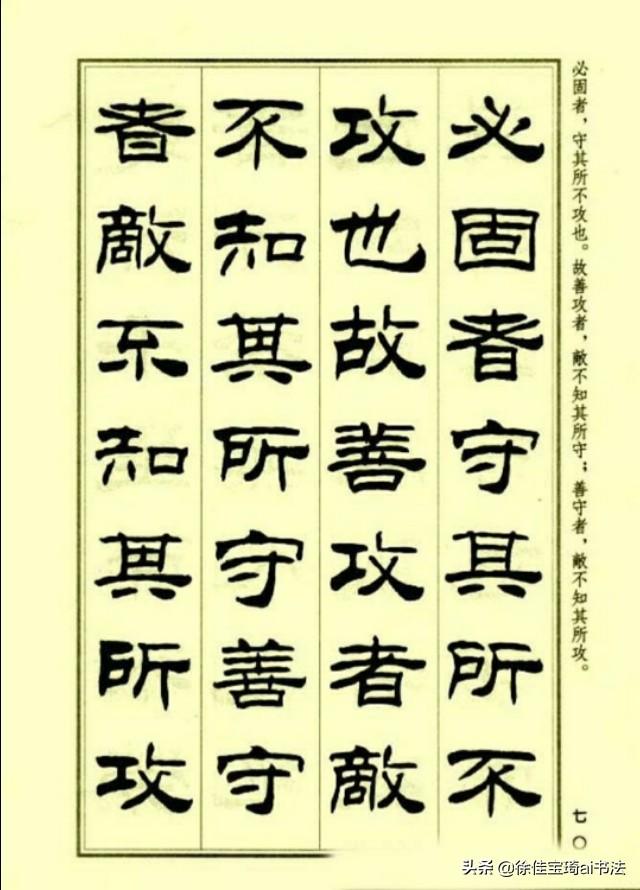 必固者，守其所不攻也。故善攻者，敵不知其所守；善守者，敵不知其所攻。
必固者守其所不
攻也故善攻者敵
不知其所守善守
者敵不知其所攻
七〇
头条 @徐佳宝琦ai书法